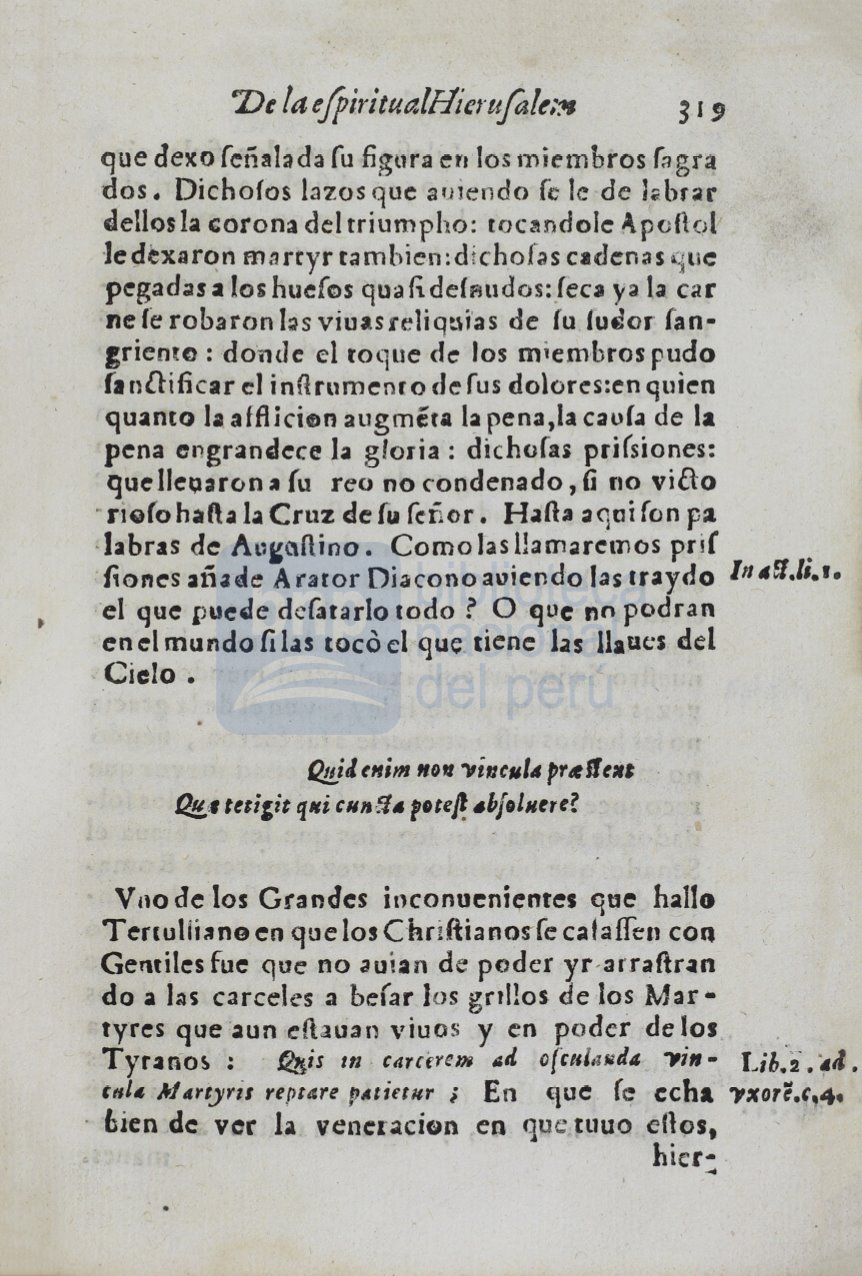 De la eſpiritual Hieruſalem 319
que dexo ſeñalada ſu figura en los miembros ſagra
dos. Dichoſos lazos que auiendo ſe le de labrar
dellos la corona del triumpho: tocandole Apoſtol
le dexaron martyr tambien: dichoſas cadenas que
pegadas a los hueſos quaſi deſnudos: ſeca ya la car
ne ſe robaron las viuas reliquias de ſu ſudor ſan-
griento : donde el toque de los miembros pudo
ſanctificar el inſtrumento de ſus dolores: en quien
quanto la afflicion augmẽta la pena, la cauſa de la
pena engrandece la gloria : dichoſas priſsiones:
que lleuaron a ſu reo no condenado, ſi no victo
rioſo haſta la Cruz de ſu ſeñor. Haſta aqui ſon pa
labras de Auguſtino. Como las llamaremos priſ
ſiones añade Arator Diacono auiendo las traydo In act.li.1.
el que puede deſatarlo todo ? O que no podran
en el mundo ſi las tocò el que tiene las llaues del
Cielo .
Quid enim non vincula præſtent
Quæ tetigit qui cuncta poteſt abſoluere?
Vno de los Grandes inconuenientes que hallo
Tertuliiano en que los Chriſtianos ſe caſaſſen con
Gentiles fue que no auian de poder yr arraſtran
do a las carceles a beſar los grillos de los Mar-
tyres que aun eſtauan viuos y en poder de los
Tyranos : Quis in carcerem ad oſculanda vin- Lib.2.ad.
cula Martyris reptare patietur ; En que ſe echa vxorẽ.c.4.
bien de ver la veneracion en que tuuo eſtos,
hier-
biblioteca
nacional
del perú